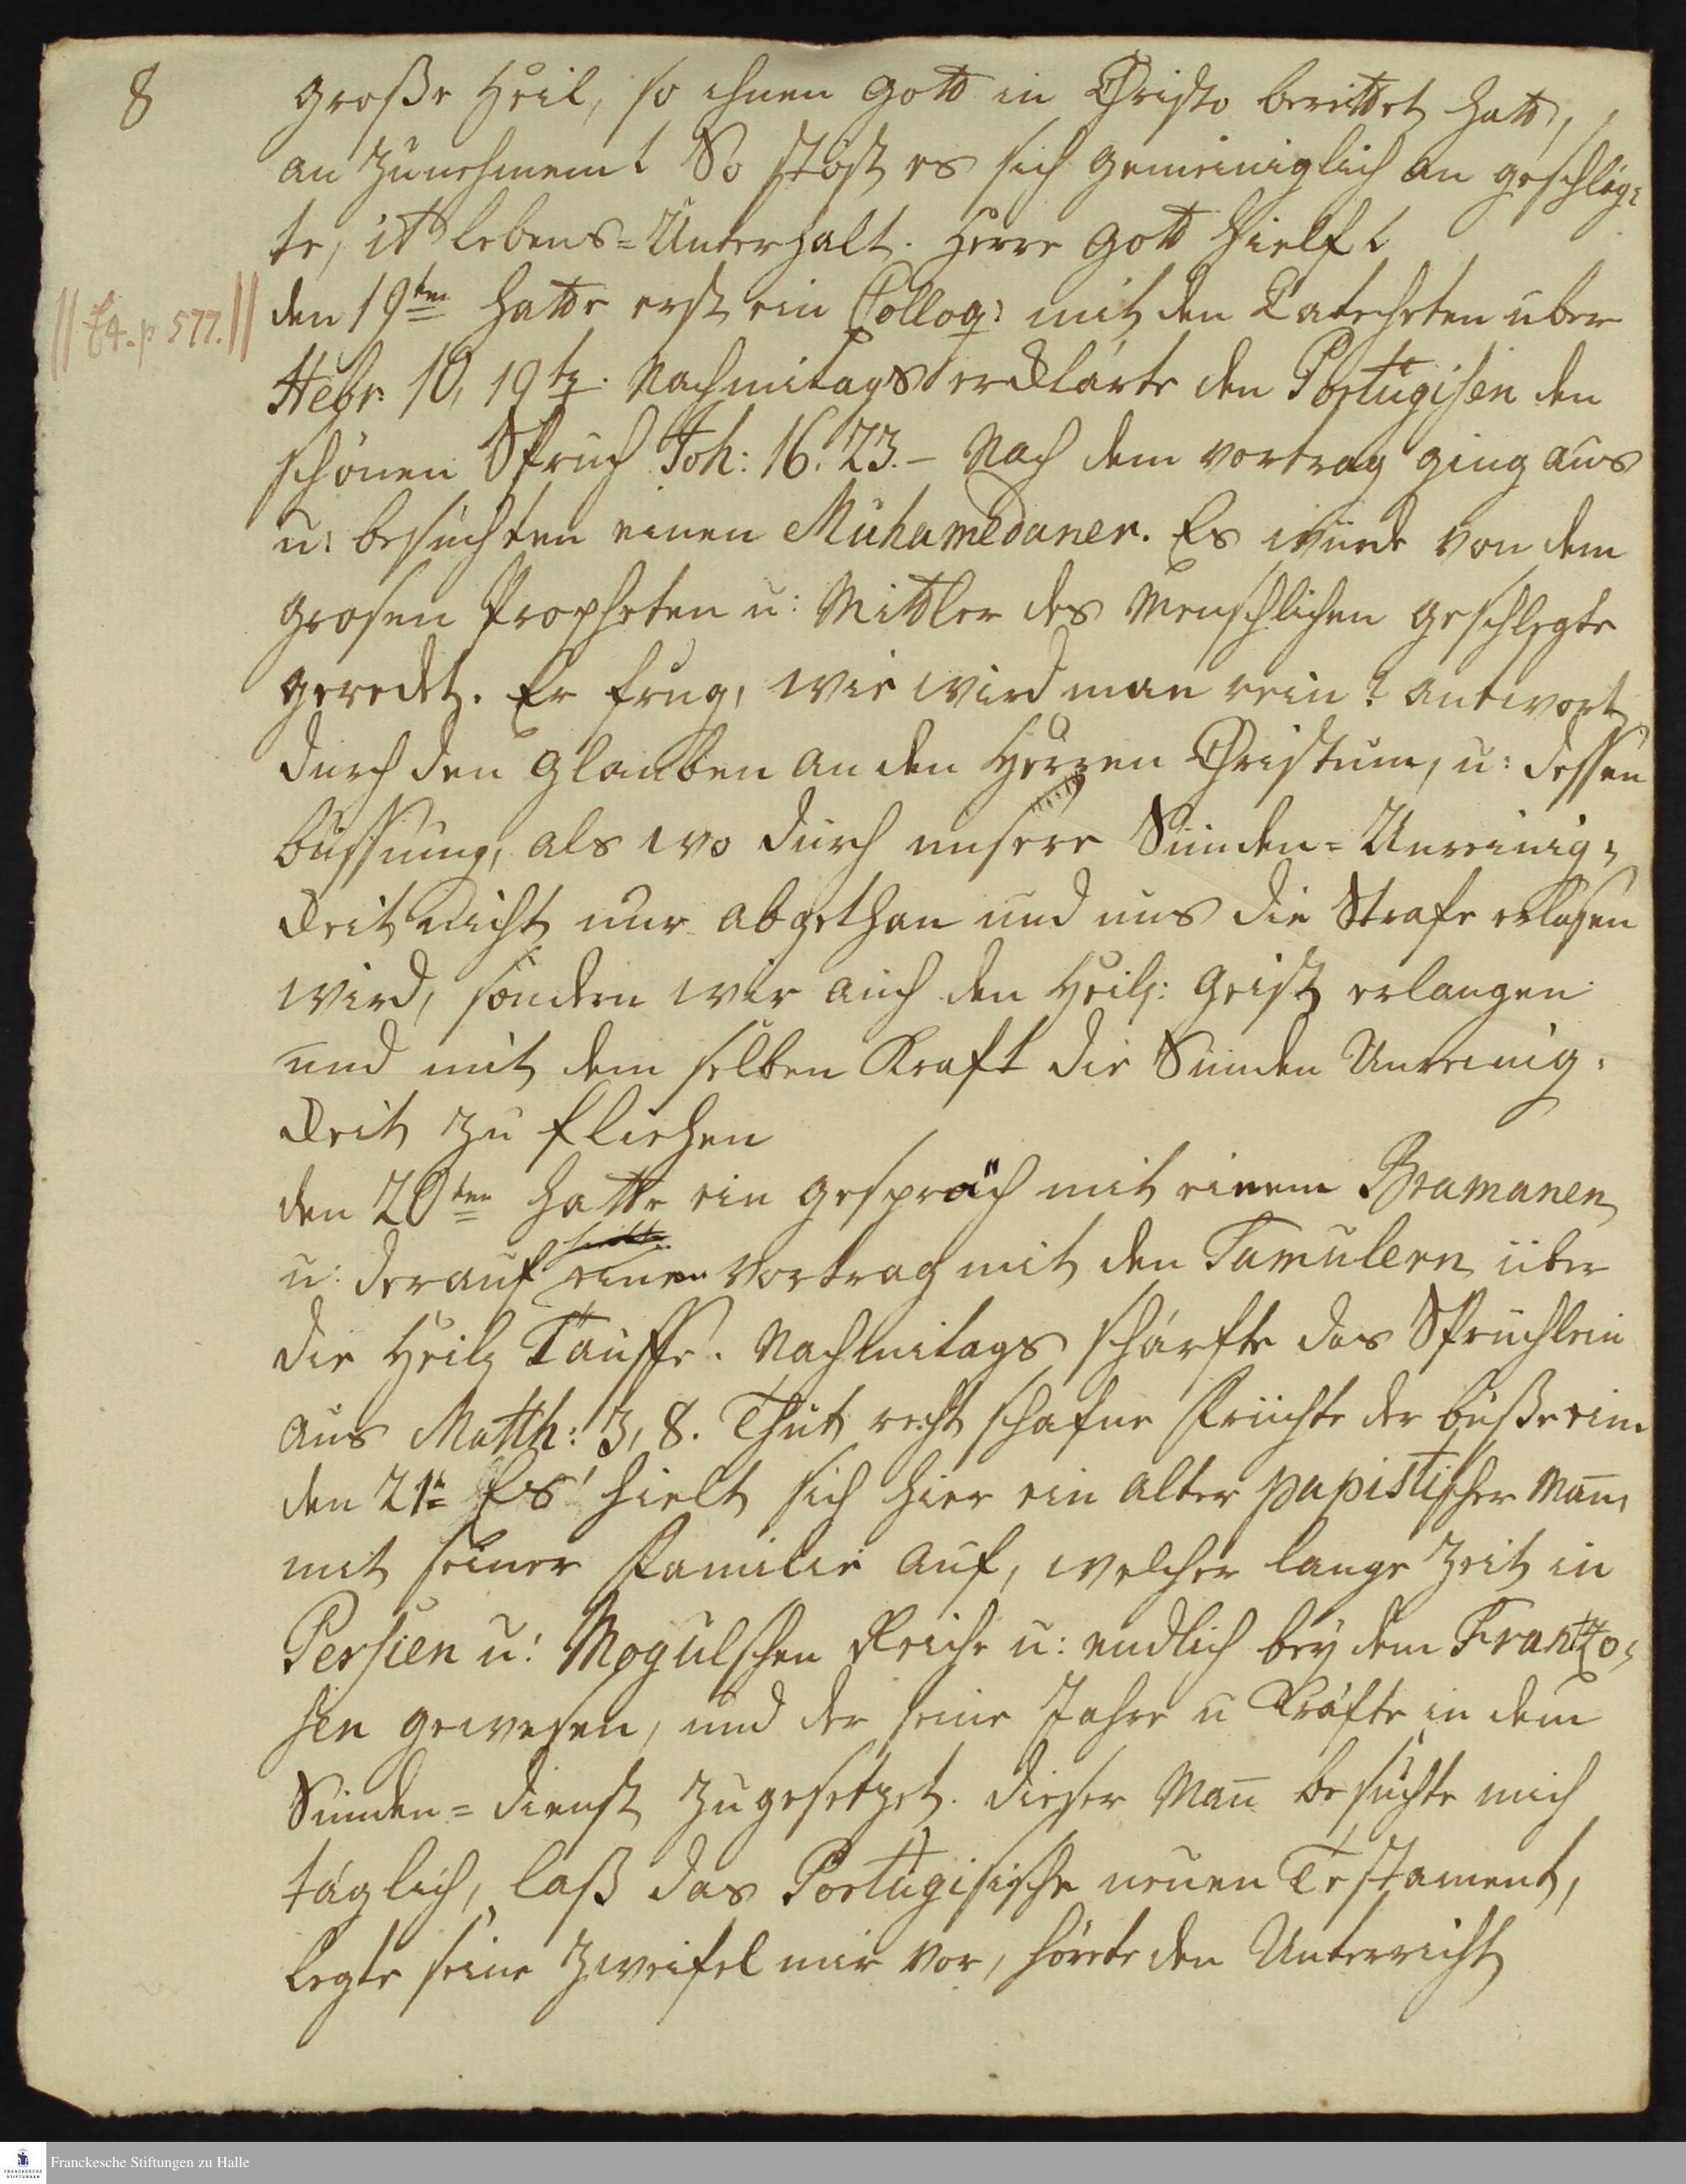 8
große Heil, so ihnen Gott in Christo bereittet hatt,
an zunehmem! So stöst es sich gemeiniglich an geschleg-
te, it lebens=Unterhalt. Herre Gott hielf!
|| t4. p 577. ||
den 19ten hatte erst ein Colloq: mit den Catecheten uber
Hebr. 10, 19 tz. Nachmitags ercklärte den Portugisen den
schönen Spruch Joh: 16. 23. – Nach dem vortrag ging aus
u: besuchten einen Muhamedaner. Es wurde von dem
grosen Propheten u: Mittler des Menschlichen geschlegte
geredet. Er frug, wie wird man rein? antwort
durch den Glauben an den Herren Christum, u: dessen
büssung, als wo durch unsere Sünden=Unreinig-
keit nicht nur abgethan und uns die Strafe erlasen
wird, sondern wir auch den Heilg: Geist erlangen
und mit dem selben Kraft die Sünden Unreinig-
keit zu fliehen
den 20ten hatte ein gespräch mit einem Bramanen
u: derauf einen Vortrag mit den Tamulern über
die Heilg Tauffe. Nachmitags schärfte das Sprüchlein
aus Matth: 3, 8. Thut recht schafne Früchte der buße ein.
den 21t Es hielt sich hier ein alter papistischer Mañ,
mit seiner Familie auf, welcher lange Zeit in
Persien u: Mogulschen Reiche u: endlich bey dem Frantzo-
sen gewesen, und der seine Jahre u Kräfte in dem
Sünden=dienst zugesetzet. dieser Mañ besuchte mich
täglich, laß das Portugisische neuen Testament,
legte seine Zweifel mir vor, hörete den Unterricht
Franckesche Stiftungen zu Halle
FRANCKESCHE STIFTUNGEN